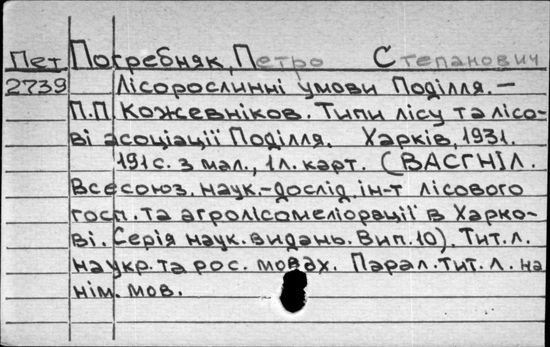 Пет Погребняк, Петро Степанович
2739 Лісорослинні умови Поділля. –
П.П. Кожевніков. Типи лісу та лісо-
ві асоціації Поділля. Харків, 1931.
191 с. з мал., 1 л. карт. (ВАСГНІЛ.
Всесоюз. наук.-дослід. ін-т лісового
госп. та агролісомеліорації в Харко-
ві. Серія наук. видань. Вип. 10). Тит. л.
на укр. та рос. мовах. Парал. тит. л. на
нім. мов.